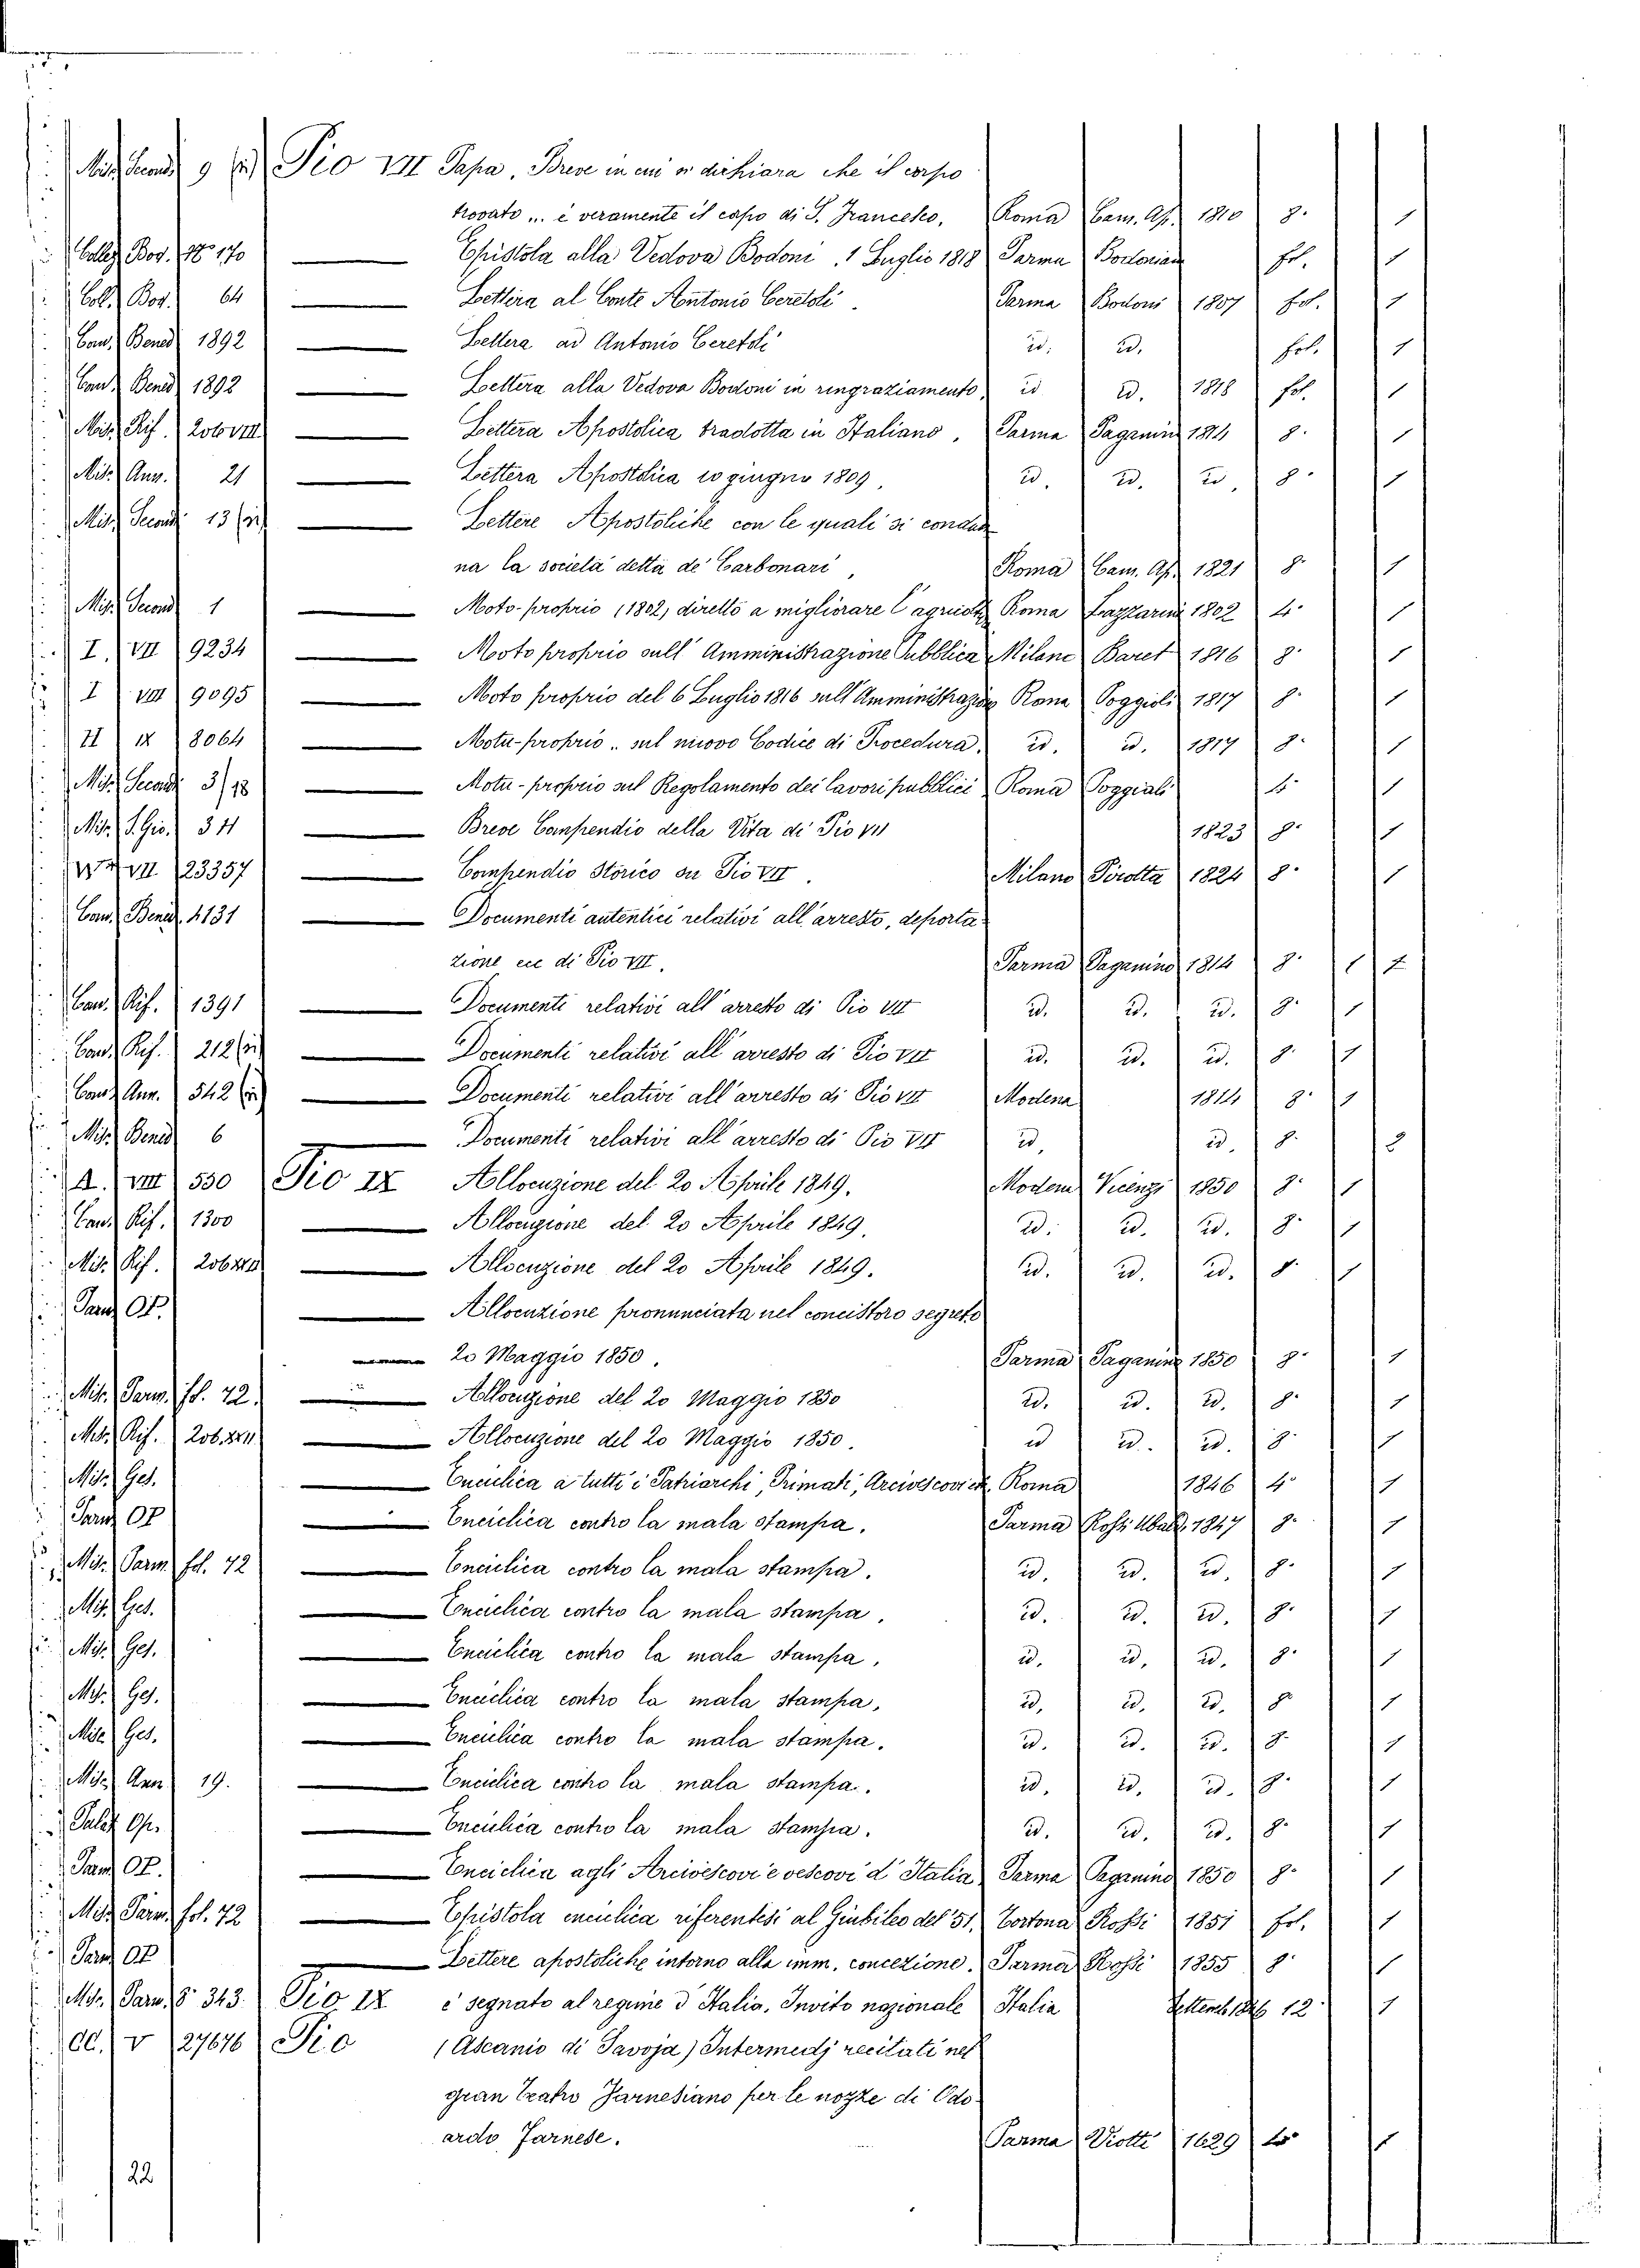 Mis. Second 9 Pio VII Papa, Breve in cui si dichiara che il corpo
trovato ,,. è veramente il capo di S. Francesco, Roma Cam. Ap. 1810 8° 1
Colley Bod. N° 170 — Epistola alla Vedova Bodoni, 1 Luglio 1818 Parma Bodonian fol. 1
Col. Bod. 64 — Lettera al Conte Antonio Ceretoli. Parma Bodoni 1807 fol. 1
Can. Bened 1892 — Lettera ad Antonio Ceretoli id. id. fol. 1
Can. Bened 1892 — Lettera alla Vedova Bodoni in ringraziamento, id id. 1818 fol. 1
Mis. Rif. 206 VIII — Lettera Apostolica tradotta in Italiano, Parma Paganin 1814 8° 1
Mis. Ann. 21 — Lettera Apostolica 10 giugno 1809, id. id. id. 8° 1
Mis. Second 13 — Lettere Apostoliche con le quali si condan
na la società detta de' Carbonari, Roma Cam. Ap. 1821 8° 1
Mis. Second 1 — Moto-proprio (1802) diretto a migliorare l'agricolt Roma Lazzarini 1802 4° 1
I. VII 9234 — Moto proprio sull' Amministrazione Pubblica Milano Baret 1816 8° 1
I VIII 9095 — Moto proprio del 6 Luglio 1816 sull' Amministrazion Roma Poggioli 1817 8° 1
II IX 8064 — Motu-proprio .. sul nuovo Codice di Procedura, id. id. 1817 8° 1
Mis. Second 3/18 — Motu-proprio sul Regolamento dei lavori pubblici Roma Poggioli 4° 1
Mis. S. Gio. 341 — Breve Compendio della Vita di Pio VII 1823 8° 1
VII 23357 — Compendio Storico su Pio VII. Milano Pirotta 1824 8° 1
Can. Bened. 4131 — Documenti autentici relativi all' arresto, deporta
zione ecc di Pio VII, Parma Paganino 1814 8° 1
Can. Rif. 1391 — Documenti relativi all' arresto di Pio VII id. id. id. 8° 1
Can. Rif. 212 — Documenti relativi all' arresto di Pio VII id. id. id. 8° 1
Can. Ann. 542 — Documenti relativi all' arresto di Pio VII Modena 1814 8° 1
Mis. Bened 6 — Documenti relativi all' arresto di Pio VII id, id. 8°
A. VIII 550 Pio IX Allocuzione del 20 Aprile 1849. Modena Vicenzi 1850 8° 1
Can. Rif. 1300 — Allocuzione del 20 Aprile 1849. id. id. id. 8° 1
Mis. Rif. — Allocuzione del 20 Aprile 1849. id. id. id. 8° 1
Parm OP. — Allocuzione pronunciata nel concistoro segreto
20 Maggio 1850. Parma Paganin 1850 8° 1
Mis. Parm. fol. 72. — Allocuzione del 20 Maggio 1850 id. id. id. 8° 1
Mis. Rif. — Allocuzione del 20 Maggio 1850. id id. id. 8° 1
Mis. Ges. — Enciclica a tutti i Patriarchi, Primati, Arcivescovi ec. Roma 1846 4° 1
Parm OP — Enciclica contro la mala stampa. Parma Rossi Ubald. 1847 8° 1
Mis. Parm fol. 72 — Enciclica contro la mala stampa. id. id. id. 8° 1
Mis. Ges. — Enciclica contro la mala stampa. id. id. id. 8° 1
Mis. Ges. — Enciclica contro la mala stampa. id. id. id. 8° 1
Mis. Ges. — Enciclica contro la mala stampa. id. id. id. 8° 1
Mis. Ges. — Enciclica contro la mala stampa. id. id. id. 8° 1
Mis. Ann 19. — Enciclica contro la mala stampa. id. id. id. 8° 1
Palat Op. — Enciclica contro la mala stampa. id. id. id. 8° 1
Parm OP. — Enciclica agli Arcivescovi e vescovi d' Italia Parma Paganino 1850 8° 1
Mis. Parm. fol. 72 — Epistola enciclica riferentesi al Giubileo del 51. Tortona Rossi 1851 fol. 1
Parm OP — Lettere apostoliche intorno alla imm. concezione. Parma Rossi 1855 8° 1
Mis. Parm. 8° 343. Pio IX è segnato al regime d' Italia. Invito nazionale Italia Settemb 1846 12° 1
CC. V 27676 Pio (Ascanio di Savoja) Intermedj recitati nel
gran Teatro Farnesiano per le nozze di Odo
ardo Farnese. Parma Viotti 1629 4° 1
22